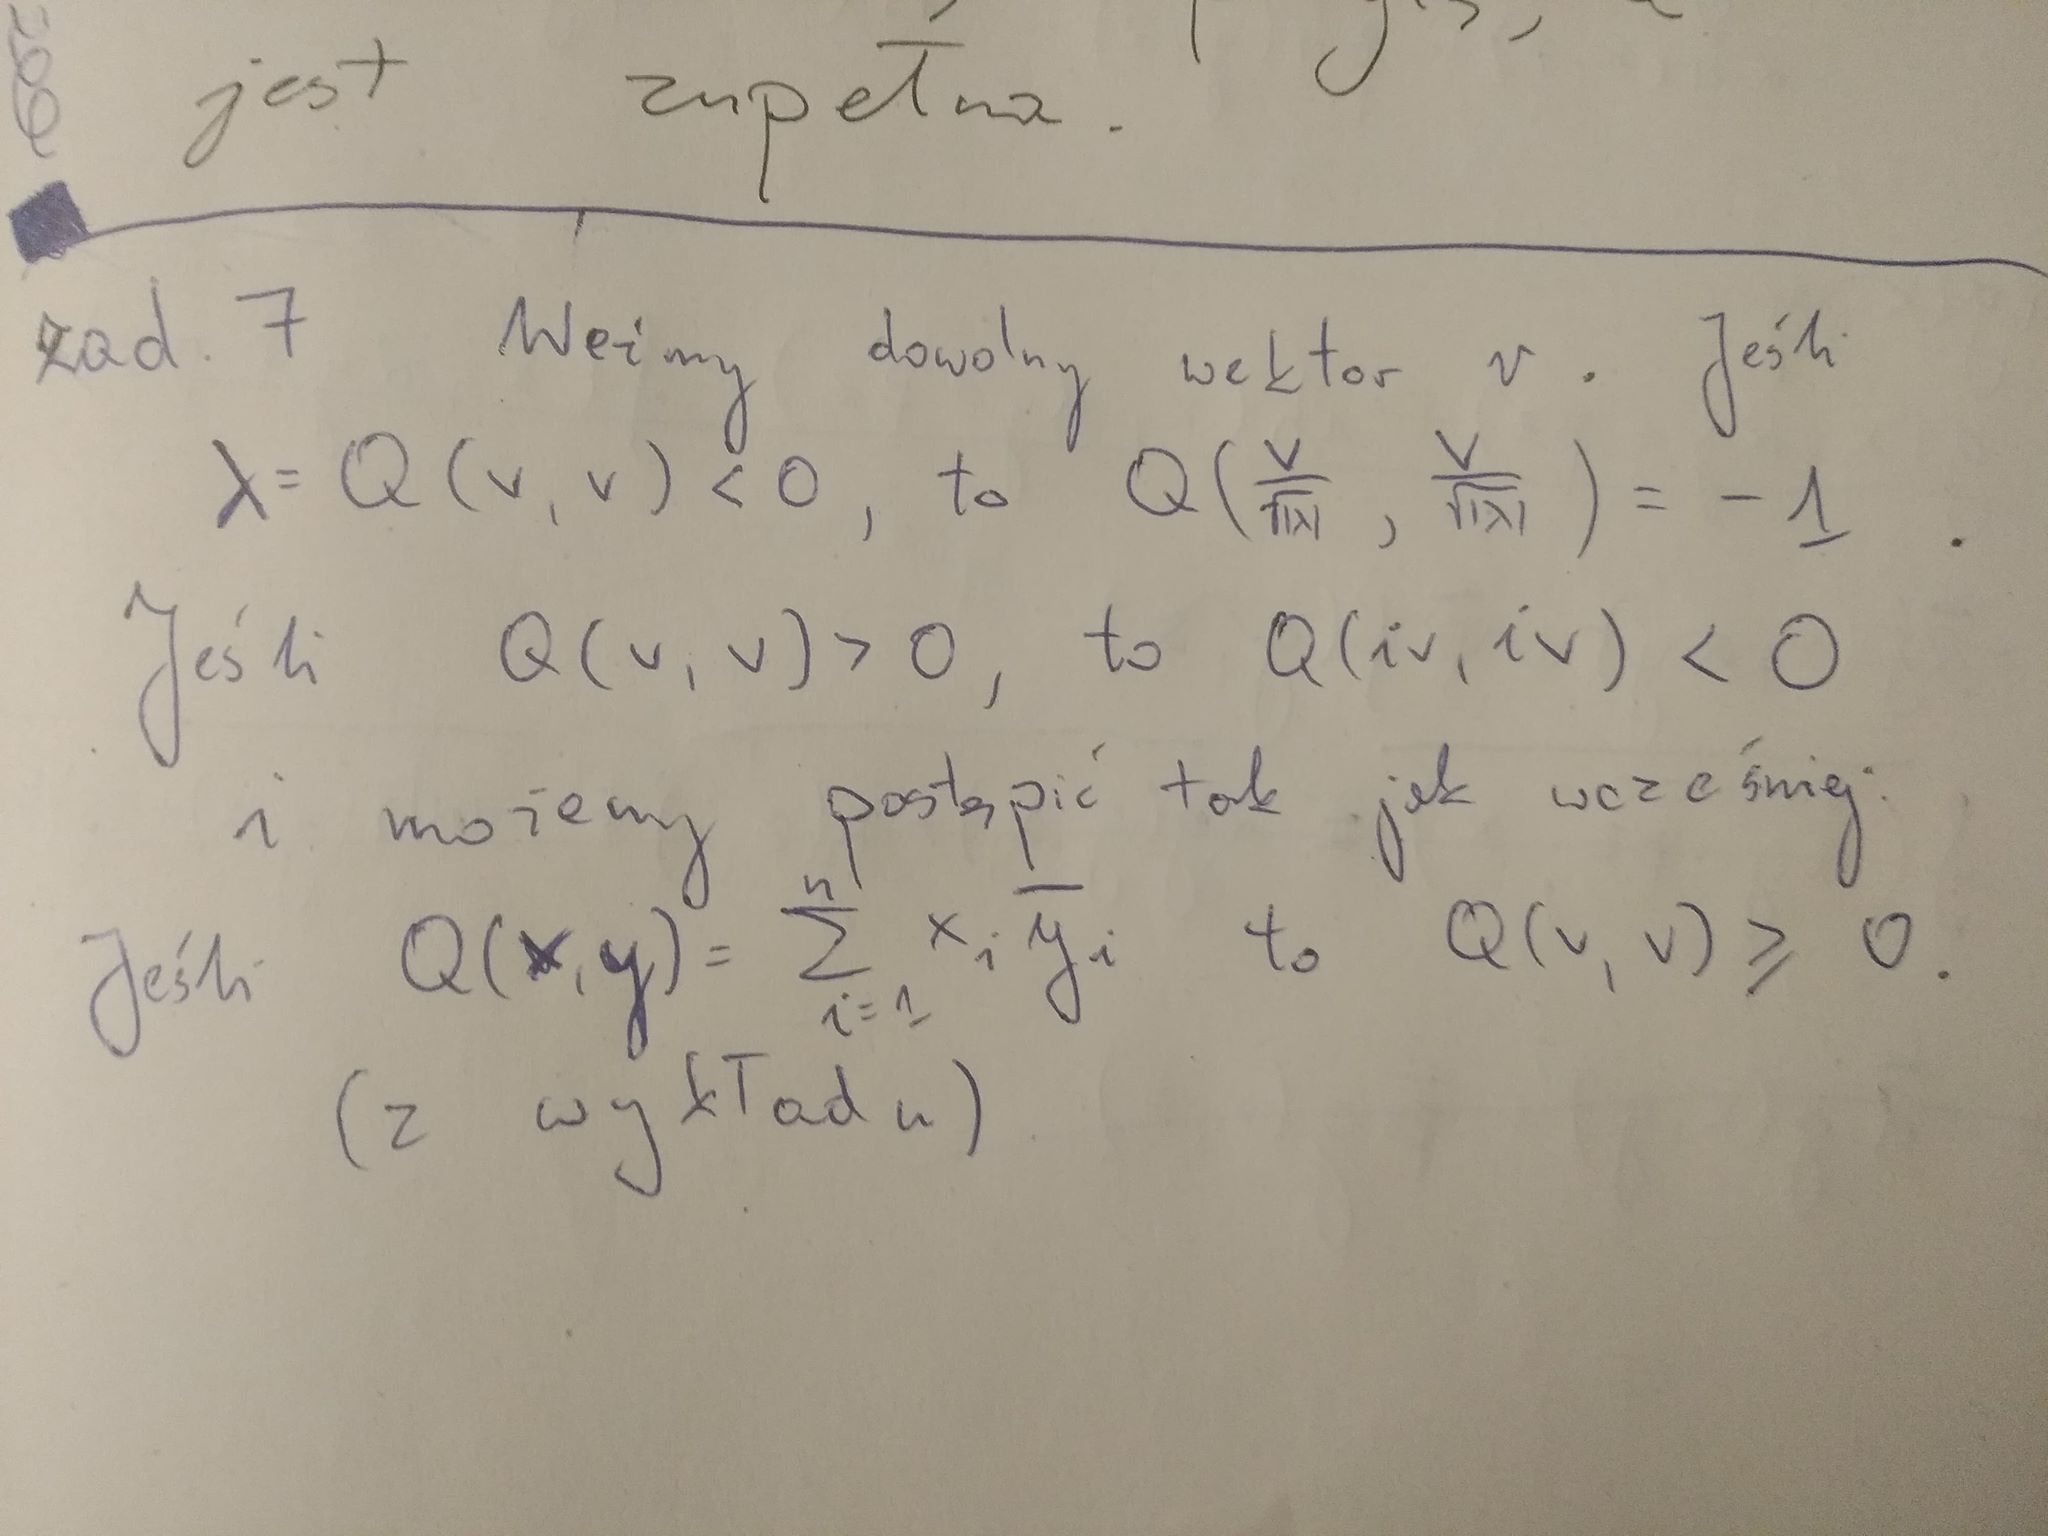 jest zupełna.
zad. 7 Weźmy dowolny wektor v. Jeśli
λ = Q(v, v) < 0, to Q(v/√|λ|, v/√|λ|) = -1.
Jeśli Q(v, v) > 0, to Q(iv, iv) < 0
i możemy postąpić tak jak wcześniej.
Jeśli Q(x, y) = ∑_{i=1}^{n} x_i \overline{y_i} to Q(v, v) ≥ 0.
(z wykładu)